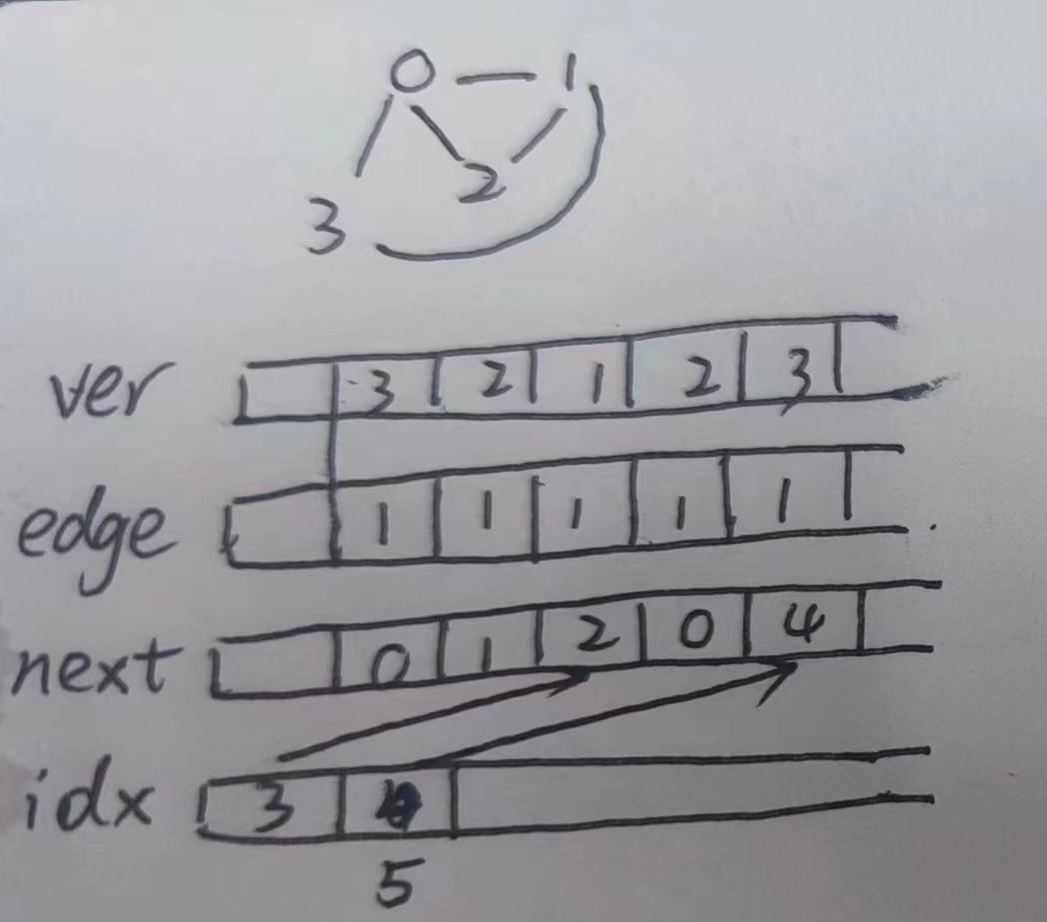 0 1
2
3
ver 3 2 1 2 3
edge 1 1 1 1 1
next 0 1 2 0 4
idx 3
5